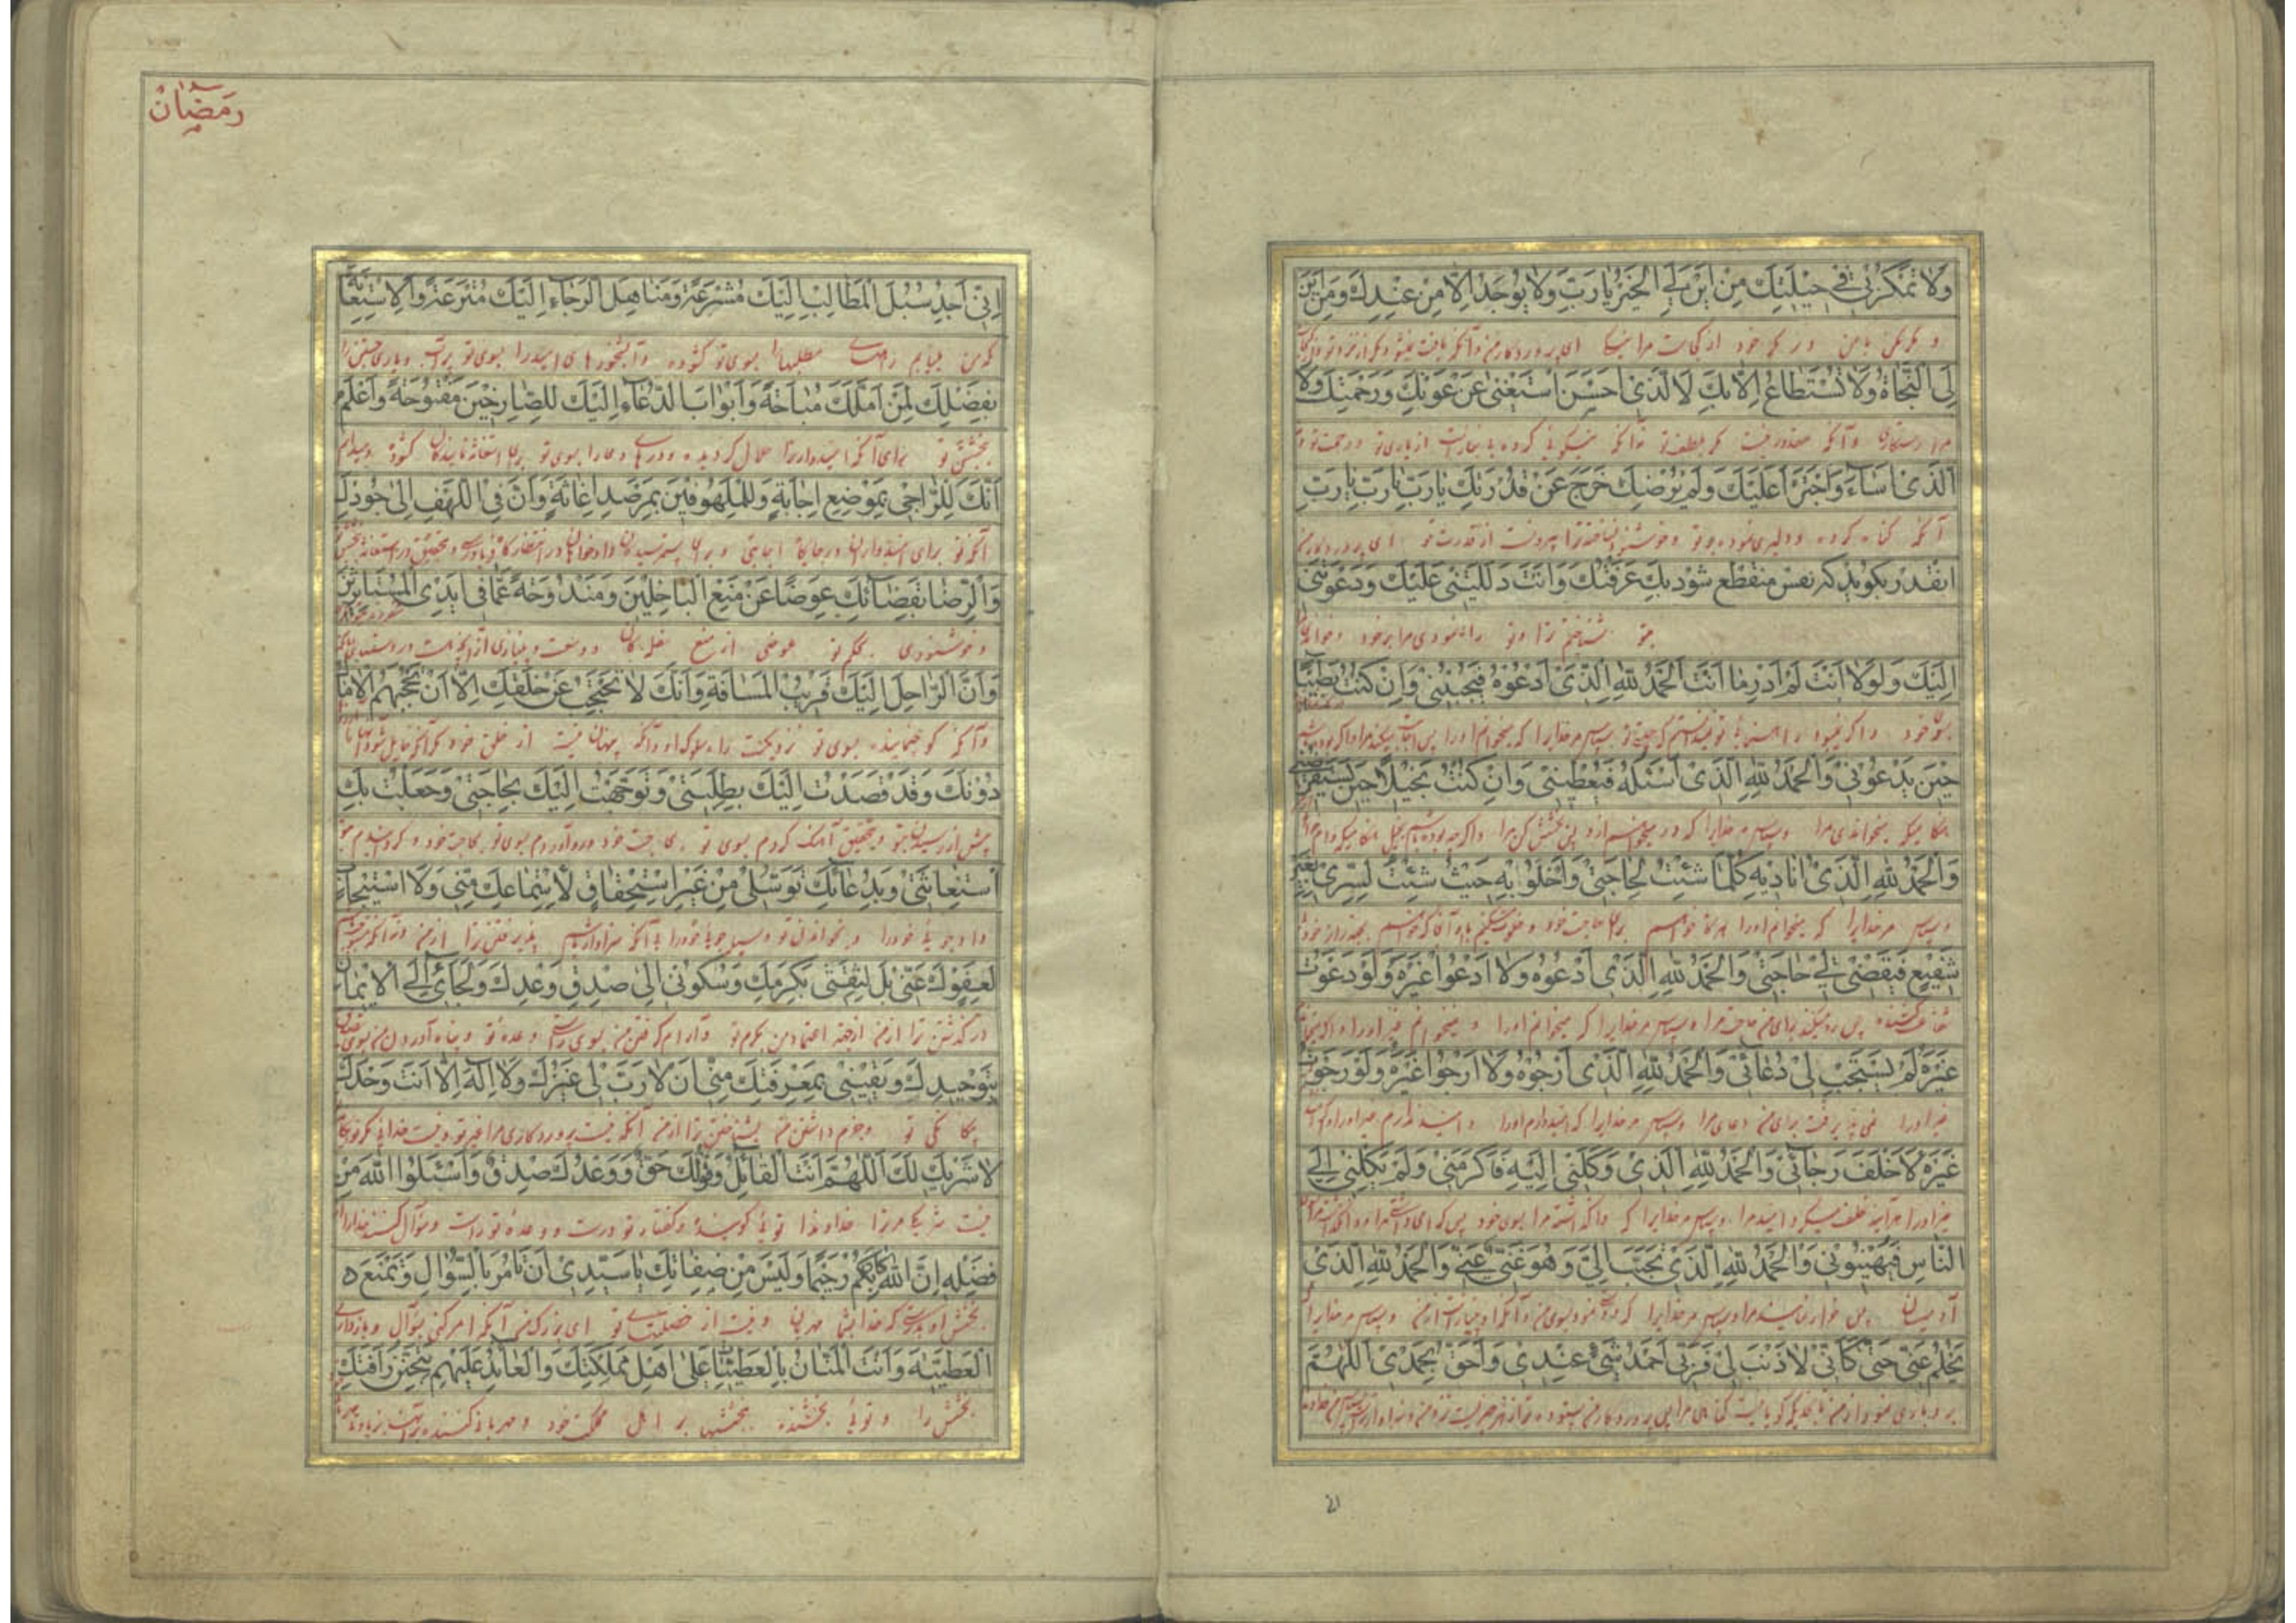 وَلَا تَمْكُرْ بِي فِي حِيلَتِكَ مِنْ أَيْنَ لِيَ الْخَيْرُ يَا رَبِّ وَلَا يُوجَدُ إِلَّا مِنْ عِنْدِكَ وَمِنْ أَيْنَ
و مکر مکن با من در مکر خود از کجاست مرا نیکی ای پروردگار من و آنکه یافت نمیشود مگر از نزد تو و از کجا
لِيَ النَّجَاةُ وَلَا تُسْتَطَاعُ إِلَّا بِكَ لَا الَّذِي أَحْسَنَ اسْتَغْنَى عَنْ عَوْنِكَ وَرَحْمَتِكَ وَلَا
مرا رستگاری و آنکه مقدور نیست مگر بلطف تو نه آنکه نیکویی کرده بی نیاز است از یاری تو و رحمت تو و نه
الَّذِي أَسَاءَ وَاجْتَرَأَ عَلَيْكَ وَلَمْ يُرْضِكَ خَرَجَ عَنْ قُدْرَتِكَ يَا رَبِّ يَا رَبِّ يَا رَبِّ
آنکه گناه کرده و دلیری نموده بر تو و خوشنود نساخته ترا بیرونست از قدرت تو ای پروردگار من
انقدر بکوید که نفس منقطع شود بِكَ عَرَفْتُكَ وَأَنْتَ دَلَلْتَنِي عَلَيْكَ وَدَعَوْتَنِي
بتو شناختم ترا و تو راه نمودی مرا بر خود و خواندی
إِلَيْكَ وَلَوْلَا أَنْتَ لَمْ أَدْرِ مَا أَنْتَ الْحَمْدُ لِلَّهِ الَّذِي أَدْعُوهُ فَيُجِيبُنِي وَإِنْ كُنْتُ بَطِيئًا
بسوی خود و اگر نمیبود تو ندانستم که چیستی تو سپاس مر خدایرا که میخوانم او را پس اجابت میکند مرا و اگر چه
حِينَ يَدْعُونِي وَالْحَمْدُ لِلَّهِ الَّذِي أَسْئَلُهُ فَيُعْطِينِي وَإِنْ كُنْتُ بَخِيلًا حِينَ يَسْتَقْرِضُنِي
هنگامیکه میخواند مرا و سپاس مر خدایرا که مرا و اگر چه بوده باشم بخیل هنگامیکه وام
وَالْحَمْدُ لِلَّهِ الَّذِي أُنَادِيهِ كُلَّمَا شِئْتُ لِحَاجَتِي وَأَخْلُو بِهِ حَيْثُ شِئْتُ لِسِرِّي بِغَيْرِ
و سپاس مر خدایرا که میخوانم او را هرگاه خواهم برای حاجت خود و خلوت میکنم باو
شَفِيعٍ فَيَقْضِي لِي حَاجَتِي وَالْحَمْدُ لِلَّهِ الَّذِي أَدْعُوهُ وَلَا أَدْعُو غَيْرَهُ وَلَوْ دَعَوْتُ
پس روا میکند برای من حاجت مرا و سپاس مر خدایرا که میخوانم او را و نمیخوانم غیر او را و اگر
غَيْرَهُ لَمْ يَسْتَجِبْ لِي دُعَائِي وَالْحَمْدُ لِلَّهِ الَّذِي أَرْجُوهُ وَلَا أَرْجُو غَيْرَهُ وَلَوْ رَجَوْتُ
غیر او را نمی پذیرفت برای من دعای مرا و سپاس مر خدایرا که امیدوارم او را و امید ندارم غیر او را
غَيْرَهُ لَأَخْلَفَ رَجَائِي وَالْحَمْدُ لِلَّهِ الَّذِي وَكَلَنِي إِلَيْهِ فَأَكْرَمَنِي وَلَمْ يَكِلْنِي إِلَى
غیر او را هر آینه خلف میکرد امید مرا و سپاس مر خدایرا که واگذاشته مرا بسوی خود
النَّاسِ فَيُهِينُونِي وَالْحَمْدُ لِلَّهِ الَّذِي تَحَبَّبَ إِلَيَّ وَهُوَ غَنِيٌّ عَنِّي وَالْحَمْدُ لِلَّهِ الَّذِي
آدمیان پس خوار نمایند مرا و سپاس مر خدایرا که دوستی نمود بسوی من و آنکه او بی نیاز است از من و سپاس مر خدایرا
يَحْلُمُ عَنِّي حَتَّى كَأَنِّي لَا ذَنْبَ لِي فَرَبِّي أَحْمَدُ شَيْءٍ عِنْدِي وَأَحَقُّ بِحَمْدِي اللَّهُمَّ
بردباری نمود از من تا بحدیکه گویا نیست گناهی مرا پس پروردگار من
۲۱
رَمَضَان
إِنِّي أَجِدُ سُبُلَ الْمَطَالِبِ إِلَيْكَ مُشْرَعَةً وَمَنَاهِلَ الرَّجَاءِ إِلَيْكَ مُتْرَعَةً وَالِاسْتِعَانَةَ
که من مییابم راههای مطلبها را بسوی تو گشوده و آبشخورهای امید را بسوی تو پر آب و یاری جستن را
بِفَضْلِكَ لِمَنْ أَمَّلَكَ مُبَاحَةً وَأَبْوَابَ الدُّعَاءِ إِلَيْكَ لِلصَّارِخِينَ مَفْتُوحَةً وَأَعْلَمُ
ببخشش تو برای آنکه امیدوار ترا حلال گردیده و درهای دعا را بسوی تو برای استغاثه نمایندگان گشوده و میدانم
أَنَّكَ لِلرَّاجِي بِمَوْضِعِ إِجَابَةٍ وَلِلْمَلْهُوفِينَ بِمَرْصَدِ إِغَاثَةٍ وَأَنَّ فِي اللَّهَفِ إِلَى جُودِكَ
آنکه تو برای امیدواران در جایگاه اجابتی و برای
وَالرِّضَا بِقَضَائِكَ عِوَضًا عَنْ مَنْعِ الْبَاخِلِينَ وَمَنْدُوحَةً عَمَّا فِي أَيْدِي الْمُسْتَأْثِرِينَ
و خوشنودی بحکم تو عوضی از منع
وَأَنَّ الرَّاحِلَ إِلَيْكَ قَرِيبُ الْمَسَافَةِ وَأَنَّكَ لَا تَحْتَجِبُ عَنْ خَلْقِكَ إِلَّا أَنْ تَحْجُبَهُمُ الْآمَالُ
و آنکه کوچ نماینده بسوی تو نزدیکست راه او و آنکه پنهان نیستی از خلق خود مگر آنکه حایل شود
دُونَكَ وَقَدْ قَصَدْتُ إِلَيْكَ بِطَلِبَتِي وَتَوَجَّهْتُ إِلَيْكَ بِحَاجَتِي وَجَعَلْتُ بِكَ
پیش از رسیدن بتو و بتحقیق آهنگ کردم بسوی تو بحاجت خود و رو آوردم بسوی تو بحاجت خود و گردانیدم بتو
اسْتِغَاثَتِي وَبِدُعَائِكَ تَوَسُّلِي مِنْ غَيْرِ اسْتِحْقَاقٍ لِاسْتِمَاعِكَ مِنِّي وَلَا اسْتِيجَابٍ
دادجویی خود را و بخواندن تو وسیله جویی خود را بی آنکه سزاوار باشم
لِعَفْوِكَ عَنِّي بَلْ لِثِقَتِي بِكَرَمِكَ وَسُكُونِي إِلَى صِدْقِ وَعْدِكَ وَلَجَائِي إِلَى الْإِيمَانِ
در گذشتن ترا از من از جهة اعتماد من بکرم تو و آرام گرفتن من بسوی راستی وعده تو و پناه آوردن من بسوی
بِتَوْحِيدِكَ وَيَقِينِي بِمَعْرِفَتِكَ مِنِّي أَنْ لَا رَبَّ لِي غَيْرُكَ وَلَا إِلَهَ إِلَّا أَنْتَ وَحْدَكَ
بیگانگی تو و جزم داشتن من بشناختن ترا از من آنکه نیست پروردگاری مرا غیر تو و نیست خدایی مگر تو
لَا شَرِيكَ لَكَ اللَّهُمَّ أَنْتَ الْقَائِلُ وَقَوْلُكَ حَقٌّ وَوَعْدُكَ صِدْقٌ وَاسْئَلُوا اللَّهَ مِنْ
نیست شریک مر ترا خداوندا تویی گوینده و گفتار تو درست و وعده تو راست و سؤال کنید خدا را از
فَضْلِهِ إِنَّ اللَّهَ كَانَ بِكُمْ رَحِيمًا وَلَيْسَ مِنْ صِفَاتِكَ يَا سَيِّدِي أَنْ تَأْمُرَ بِالسُّؤَالِ وَتَمْنَعَ
بخشش او بدرستی که خدا بشما مهربان و نیست از خصلتهای تو ای بزرگ من آنکه امر کنی بسؤال و بازداری
الْعَطِيَّةَ وَأَنْتَ الْمَنَّانُ بِالْعَطِيَّاتِ عَلَى أَهْلِ مَمْلَكَتِكَ وَالْعَائِدُ عَلَيْهِمْ بِتَحَنُّنِ رَأْفَتِكَ
بخشش را و تویی بخشنده ببخششها بر اهل مملکت خود و مهربانی کننده